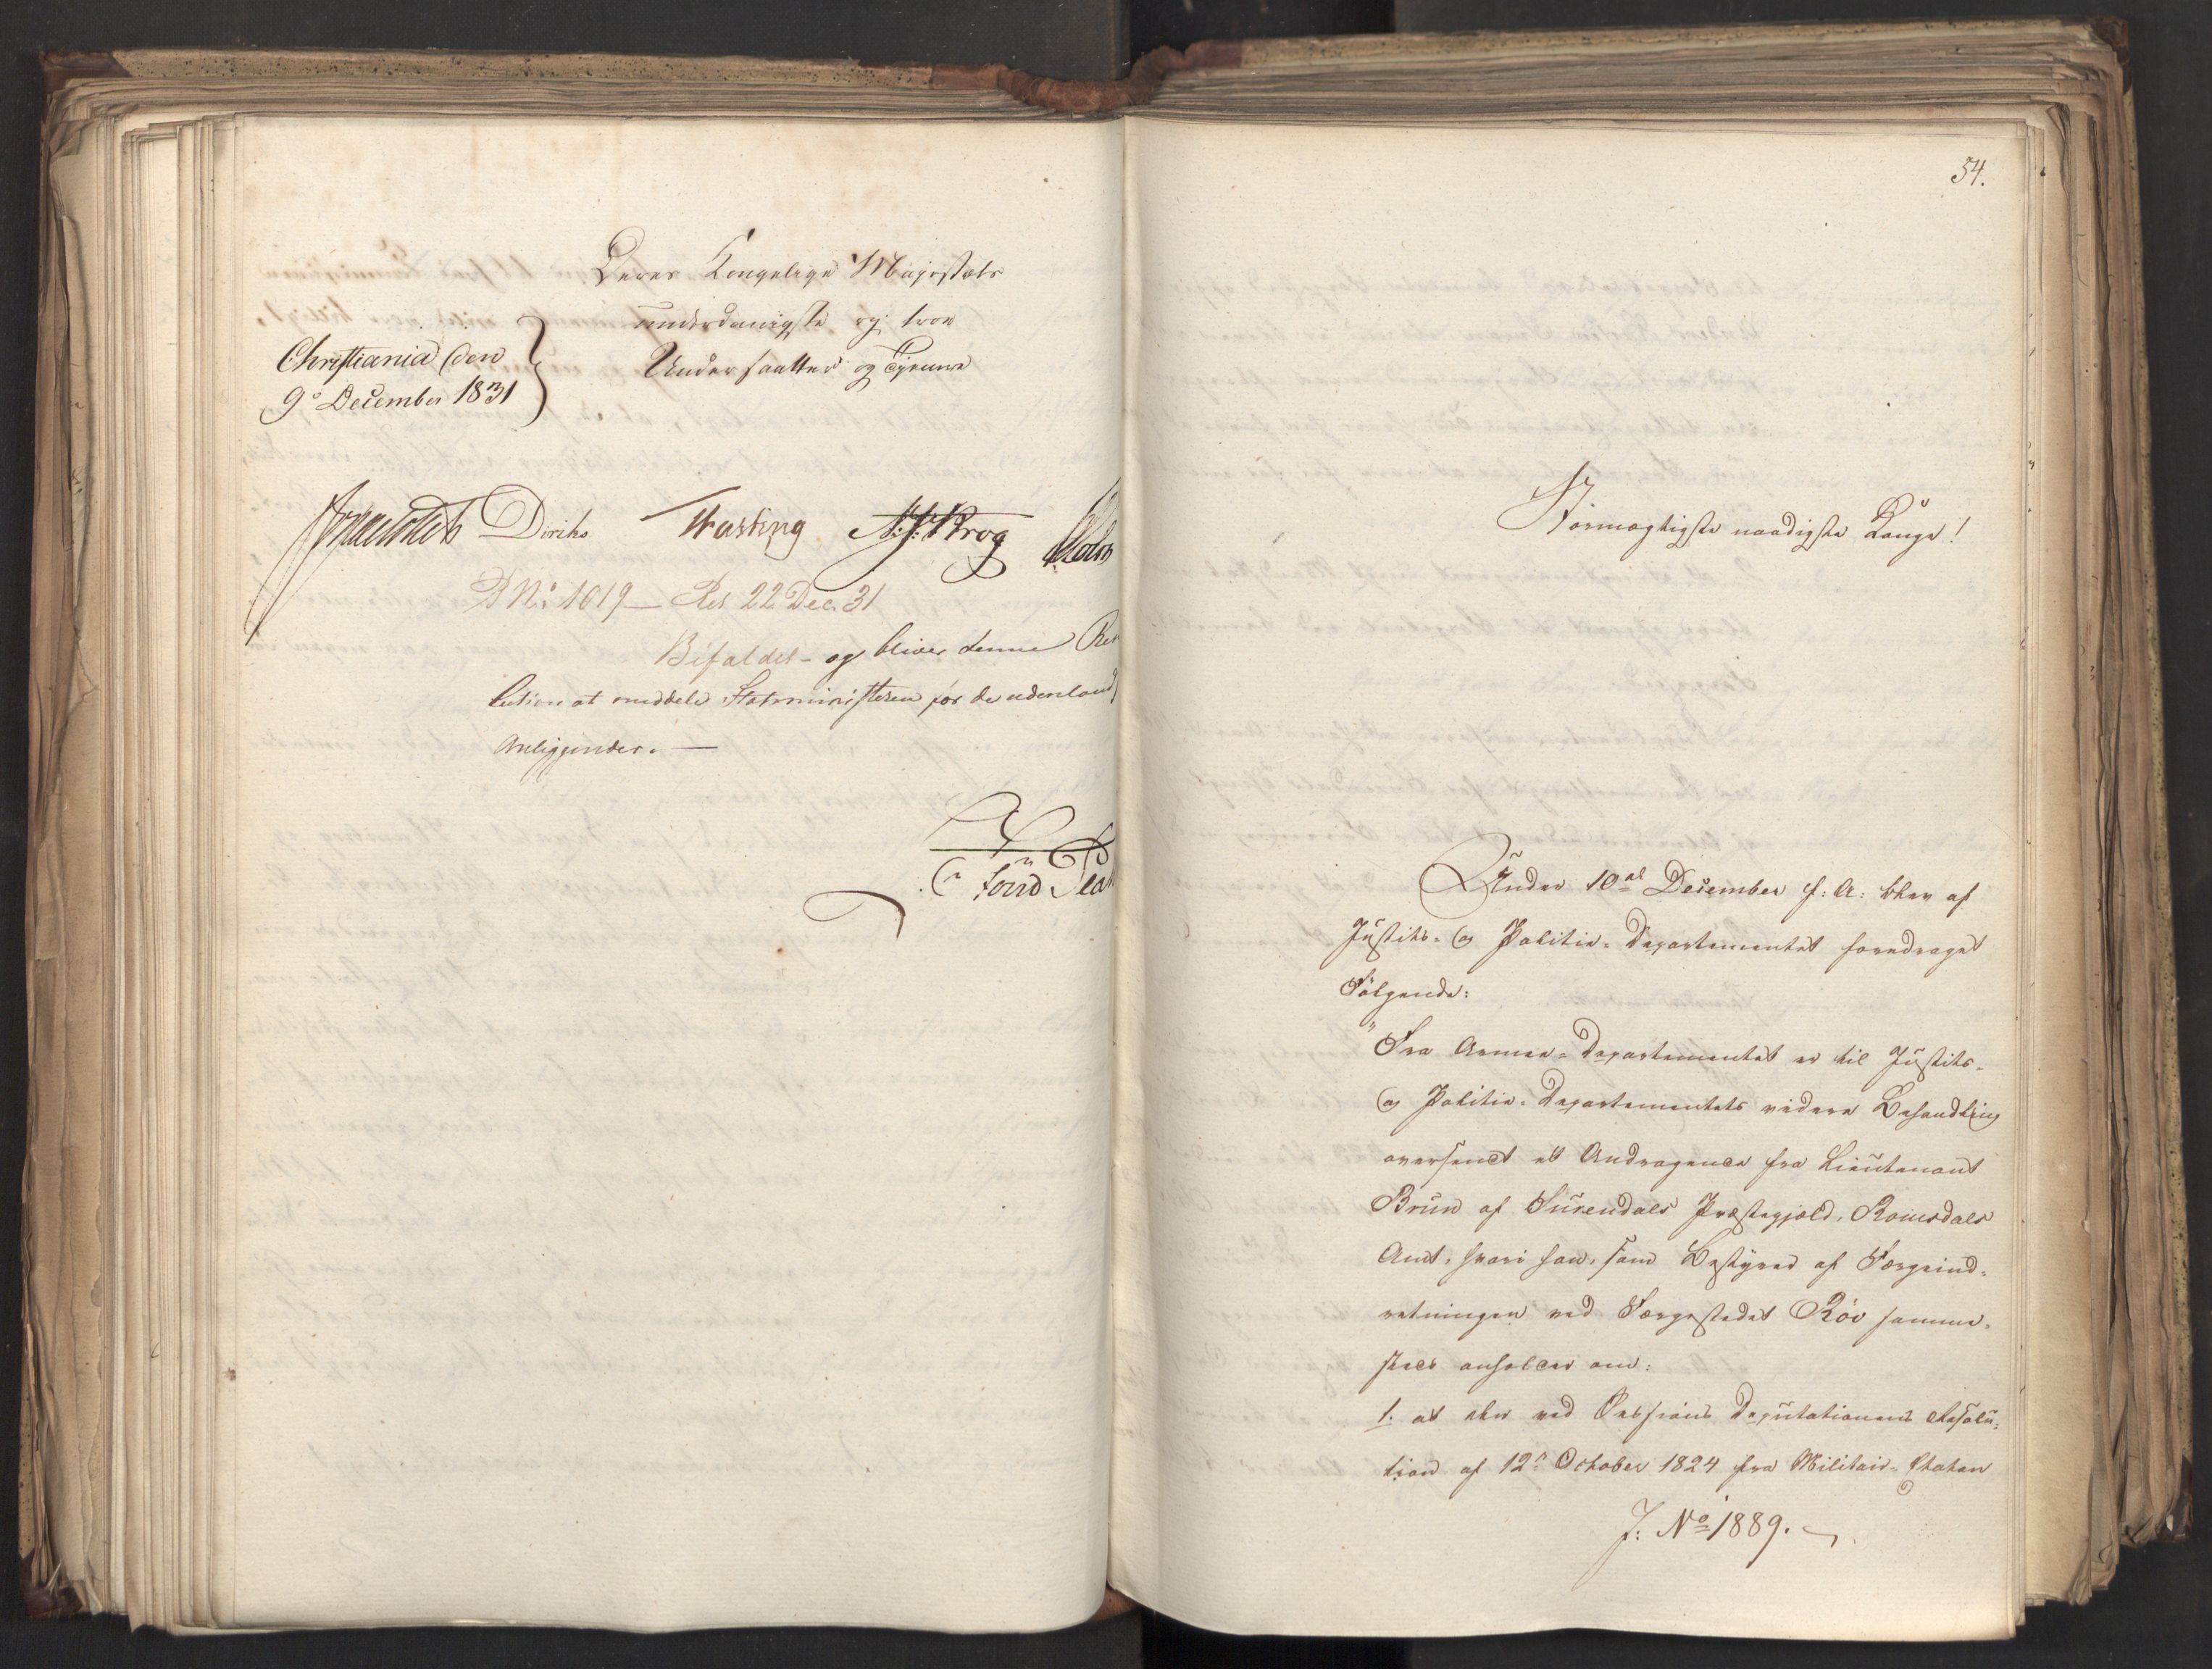 Deres Kongelige Majestæts
underdanigste og troe
Undersaatter og Tjenere
Christiania den
9de December 1831
Diriks Fasting N. J. Krog
B No 1619 — Res 22 Dec. 31
Bifaldet - og bliver denne Reso
lution at meddele Statsministeren for de udenlandsk
Anliggender. —
54.
Stormægtigste naadigste Konge!
Under 10de December f: A: blev af
Justits- og Politie-Departementet foredraget
Følgende:
"Fra Armee-Departementet er til Justits-
og Politie-Departementets videre Behandling
oversendt et Andragende fra Lieutenant
Brun af Surendals Præstegjæld, Romsdals
Amt, hvori han, som Bestyrer af Færgeind-
retningen ved Færgestedet Røv samme-
steds anholder om:
1. at den ved Sessions Deputationens Resolu-
tion af 12te October 1824 fra Militair-Etaten
J: No 1889.